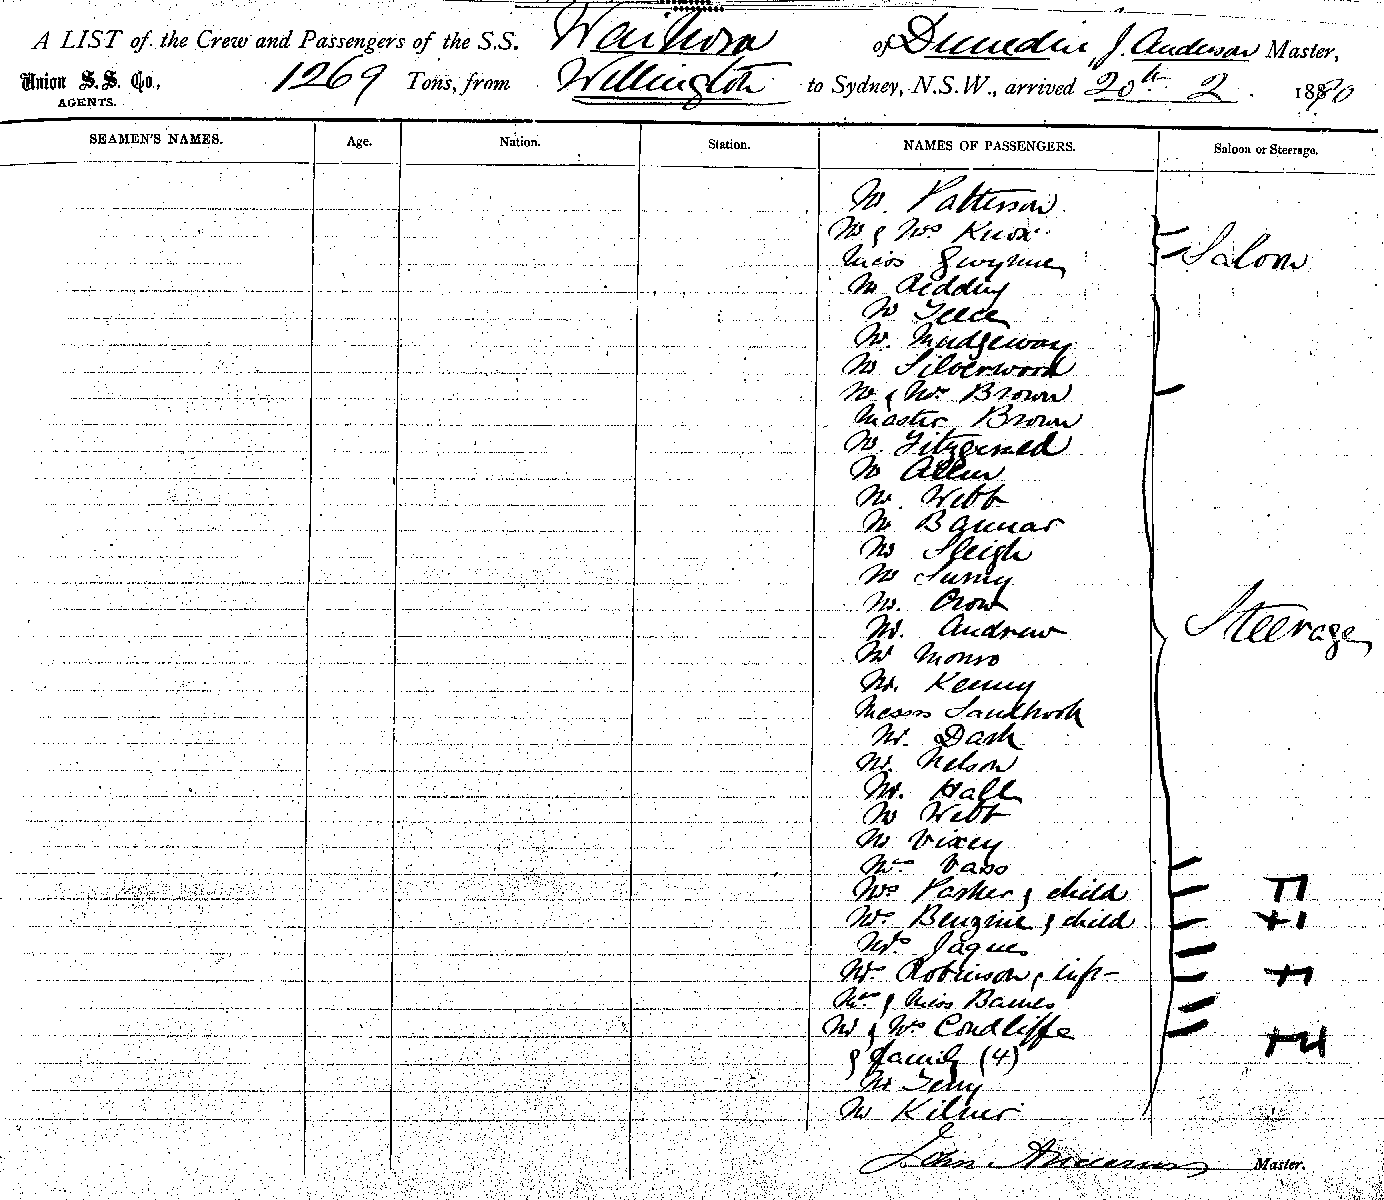 A LIST of the Crew and Passengers of the S.S. Waihora of Dunedin, J. Anderson Master,
Union S.S. Co., AGENTS. 1269 Tons, from Wellington to Sydney, N.S.W., arrived 20th 2. 1890
SEAMEN'S NAMES. Age. Nation. Station. NAMES OF PASSENGERS. Saloon or Steerage.
Mr. Patterson
Mr & Mrs Knox
Miss Gwynne Saloon
Mr Redding
Mr Teece
Mr. Mudgeway
Mr Silverwood
Mr & Mrs Brown
Master Brown
Mr. Fitzgerald
Mr Allen
Mr. Webb
Mr Bannar
Mr Sleigh
Mr
Mr. Crow
Mr. Andrew Steerage
Mr Monro
Mr. Kenny
Messrs Sandbrook
Mr. Dash
Mr. Nelson
Mr. Hall
Mr Webb
Mr Vixey
Mrs Vass
Mrs Parker & child
Mrs & child
Mrs Jaques
Mrs Robinson & inft
Mrs & Miss Barnes
Mr & Mrs Condliffe
& family (4)
Mr Terry
Mr Kilner
John Anderson Master.